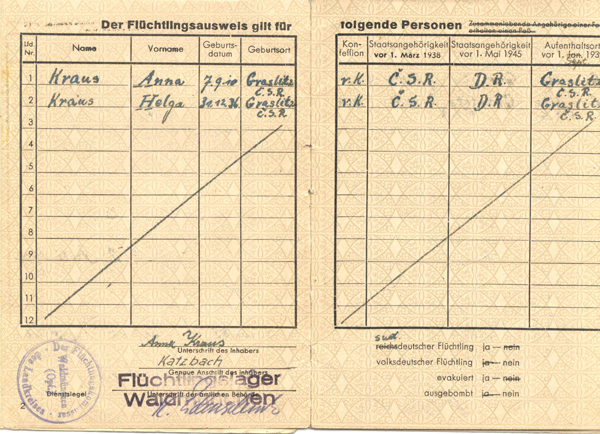 Der Flüchtlingsausweis gilt für
Lfd. Nr.
Name
Vorname
Geburts-
datum
Geburtsort
1 Kraus Anna 7.9.10 Graslitz
Č.S.R.
2 Kraus Helga 31.12.36 Graslitz
Č.S.R.
3
4
5
6
7
8
9
10
11
12
Anna Kraus
Unterschrift des Inhabers
Katzbach
Genaue Anschrift des Inhabers
Flüchtlingslager
Dienstsiegel
Unterschrift der amtlichen Behörde
2
folgende Personen
Zusammenlebende Angehörige einer
erhalten einen Paß
Kon-
feſſion
Staatsangehörigkeit
vor 1. März 1938
Staatsangehörigkeit
vor 1. Mai 1945
Aufenthaltsort
vor 1. Jan. 193
Sept
r.K. Č.S.R. D.R. Graslitz
Č.S.R.
r.K. Č.S.R. D.R Graslitz
Č.S.R.
sud.
reichsdeutscher Flüchtling ja — nein
volksdeutscher Flüchtling ja — nein
evakuiert ja — nein
ausgebombt ja — nein